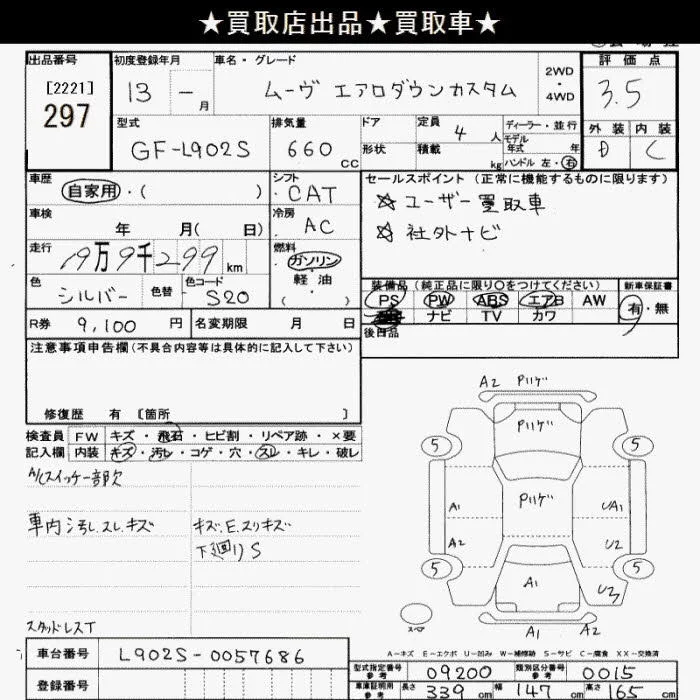 ★買取店出品★買取車★
出品番号 [2221] 297
初度登録年月 13 - 月
車名・グレード ムーヴ エアロダウンカスタム
2WD・4WD
評価点 3.5
外装 D 内装 C
型式 GF-L902S
排気量 660 CC
ドア形状
定員 4 人
積載 kg
ディーラー・並行
モデル年式 年
ハンドル 左・右
車歴 自家用・( )
シフト CAT
セールスポイント (正常に機能するものに限ります)
☆ユーザー買取車
☆社外ナビ
車検 年 月( 日)
冷房 AC
走行 9千299 km
燃料 ガソリン・軽油・( )
色 シルバー 色替
色コード S20
装備品 (純正品に限り○をつけてください)
PS PW ABS エアB AW
ナビ TV カワ
新車保証書 有・無
後日品
R券 9,100 円
名変期限 月 日
注意事項申告欄 (不具合内容等は具体的に記入して下さい)
修復歴 有 〔箇所 〕
検査員 FW キズ・飛石・ヒビ割・リペア跡・×要
記入欄 内装 キズ・汚レ・コゲ・穴・スレ・キレ・破レ
A/Cスイッチ一部欠
車内汚レ.スレ.キズ
キズ.E.スリキズ
下廻りS
スタッドレスT
A2 Pハゲ
Pハゲ
5 5
Pハゲ
A1 UA1
A2 U2
5 5
A1 U3
スペア
A1 A2
A-キズ E-エクボ U-凹み W-補修跡 S-サビ C-腐食 XX-交換済
車台番号 L902S-0057686
登録番号
型式指定番号参考 09200
類別区分番号参考 0015
車庫証明用参考 長さ 339 cm 幅 147 cm 高さ 165 cm